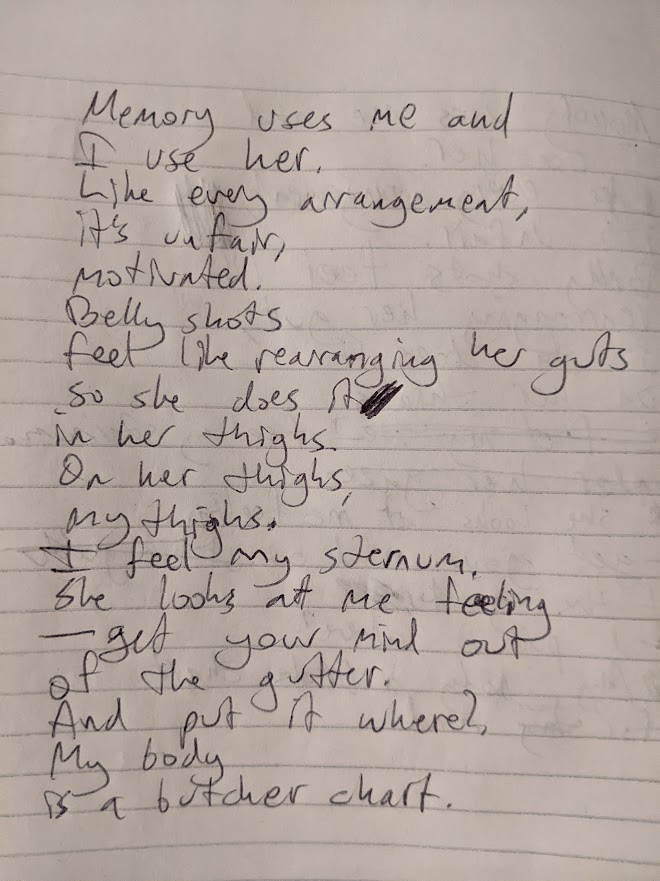 Memory uses me and
I use her.
Like every arrangement,
it's unfair,
motivated.
Belly shots
feel like rearranging her guts
so she does it
in her thighs.
On her thighs,
my thighs.
I feel my sternum.
She looks at me feeling
—get your mind out
of the gutter.
And put it where?
My body
is a butcher chart.